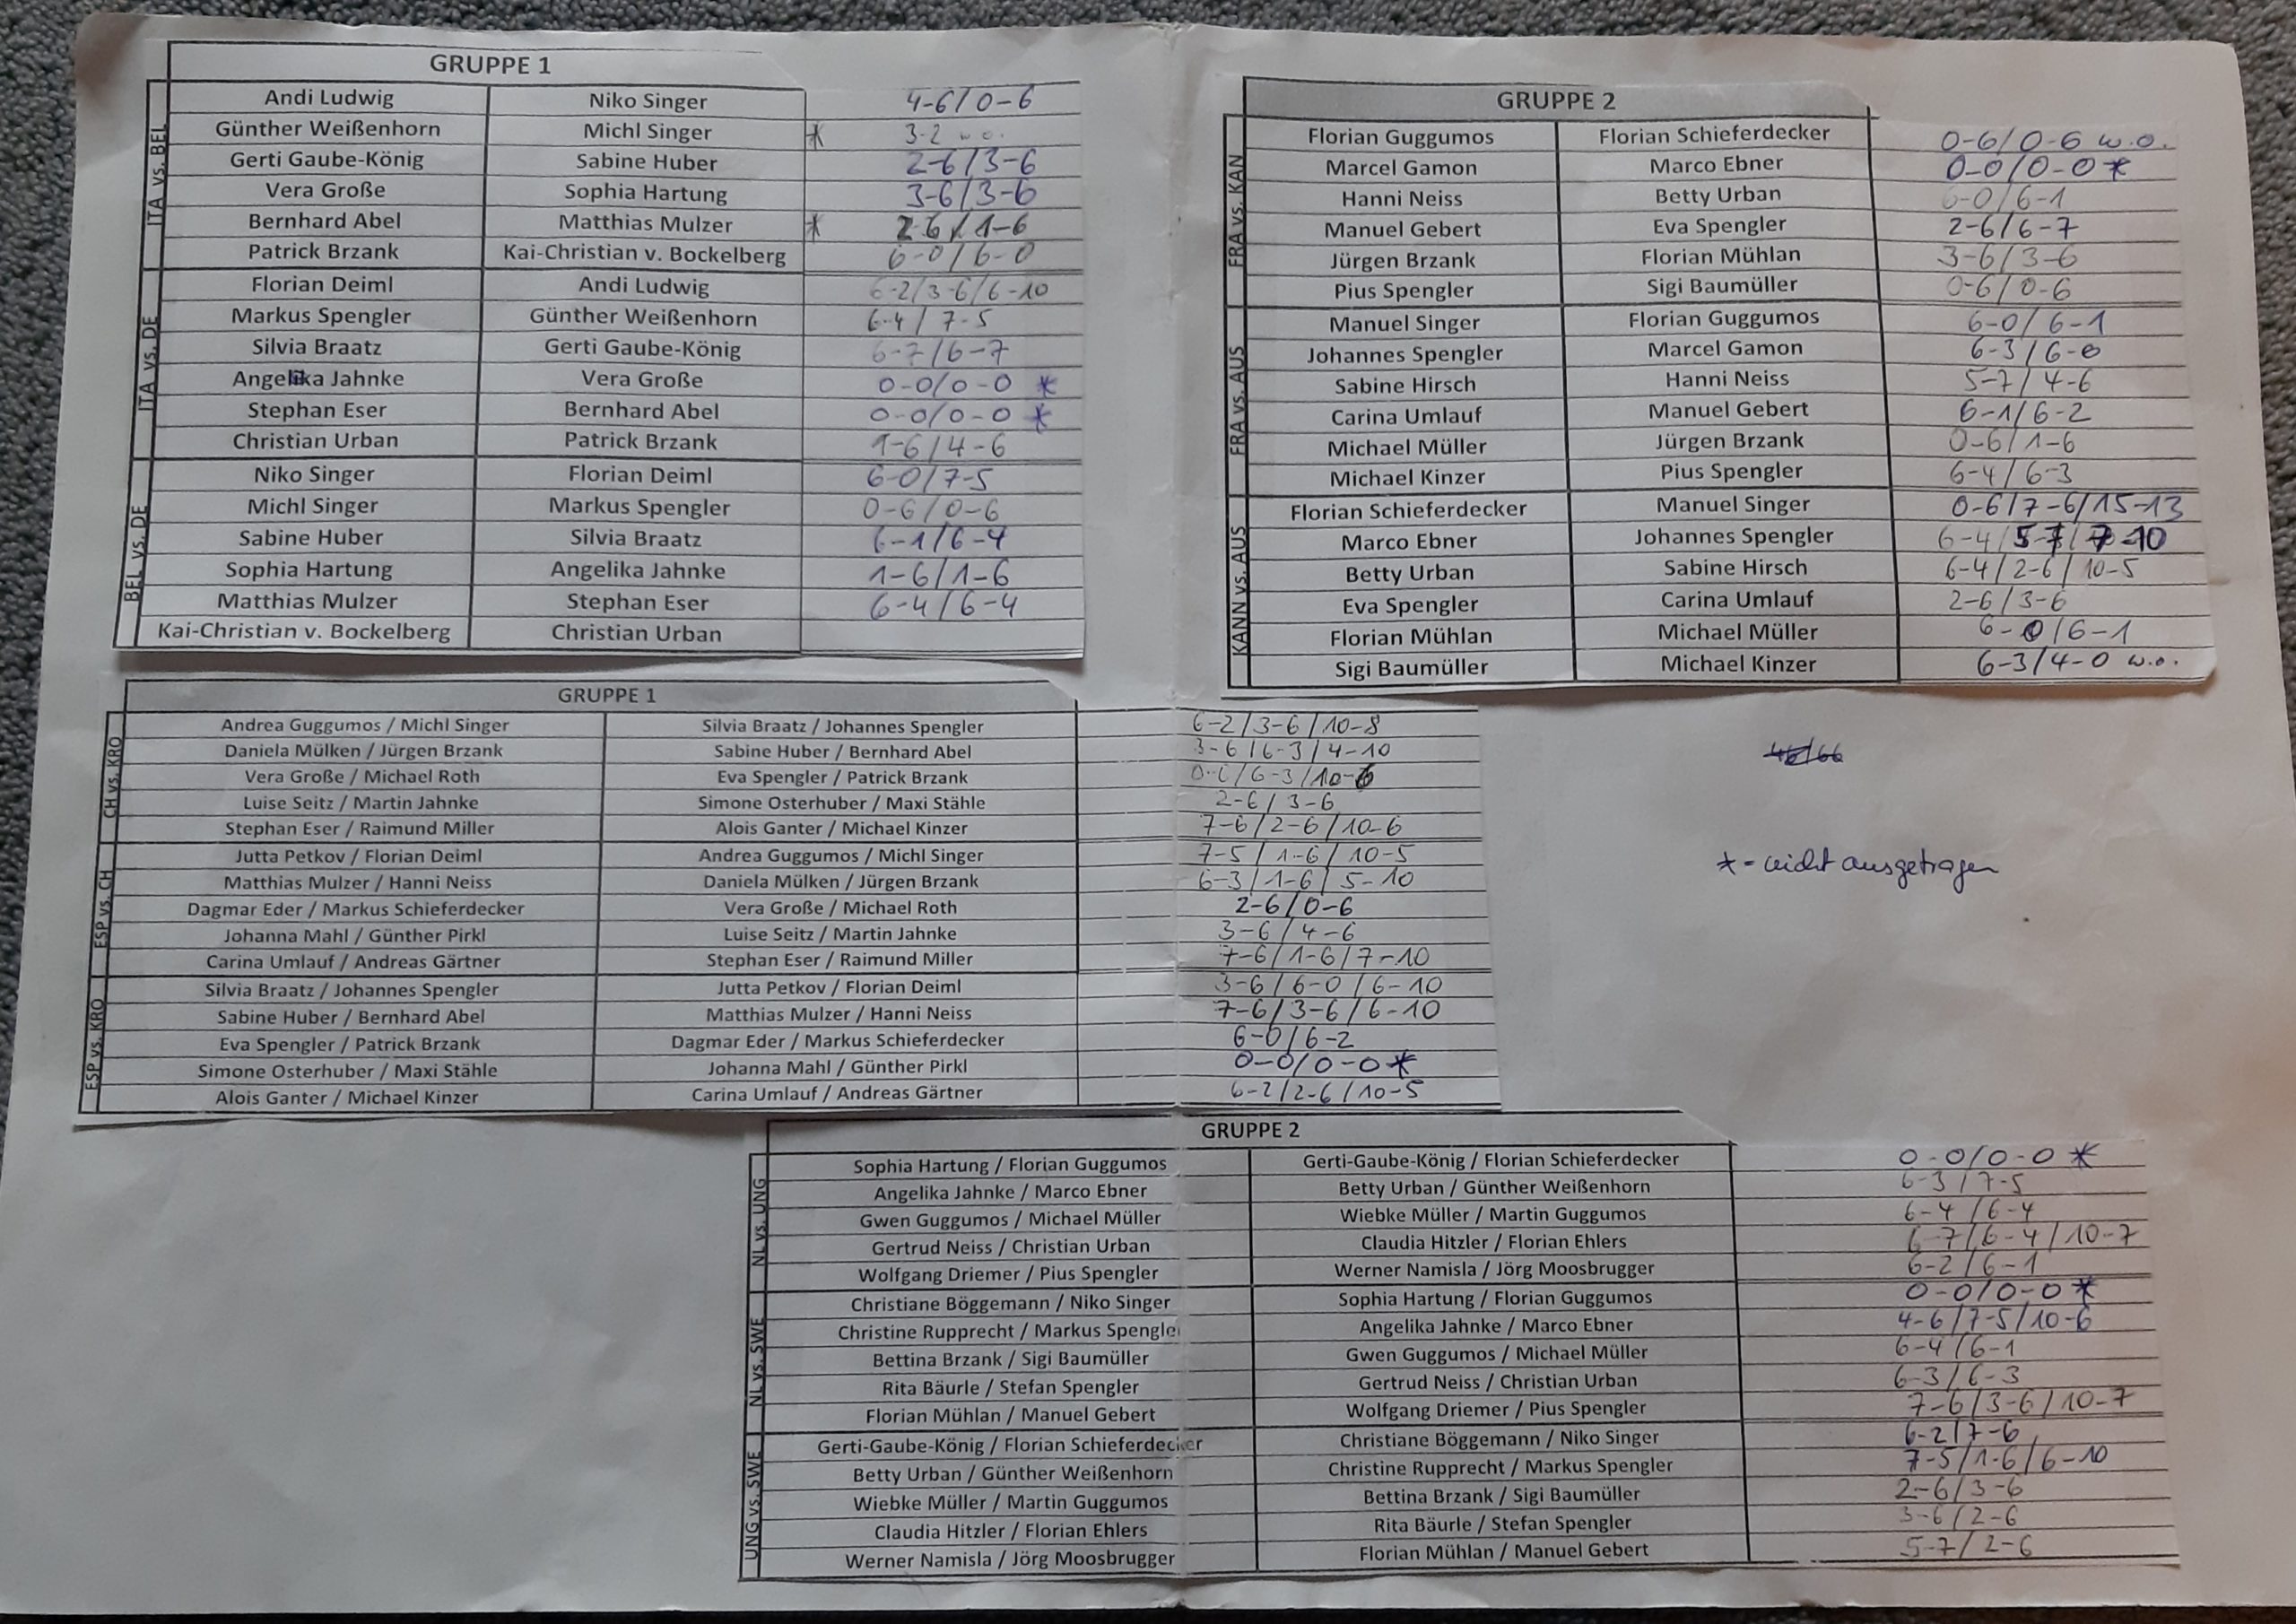 GRUPPE 1
ITA vs. BEL
Andi Ludwig Niko Singer 4-6/0-6
Günther Weißenhorn Michl Singer * 3-2 w.o.
Gerti Gaube-König Sabine Huber 2-6/3-6
Vera Große Sophia Hartung 3-6/3-6
Bernhard Abel Matthias Mulzer * 2-6/1-6
Patrick Brzank Kai-Christian v. Bockelberg 6-0/6-0
ITA vs. DE
Florian Deiml Andi Ludwig 6-2/3-6/6-10
Markus Spengler Günther Weißenhorn 6-4/7-5
Silvia Braatz Gerti Gaube-König 6-7/6-7
Angelika Jahnke Vera Große 0-0/0-0 *
Stephan Eser Bernhard Abel 0-0/0-0 *
Christian Urban Patrick Brzank 1-6/4-6
BEL vs. DE
Niko Singer Florian Deiml 6-0/7-5
Michl Singer Markus Spengler 0-6/0-6
Sabine Huber Silvia Braatz 6-1/6-4
Sophia Hartung Angelika Jahnke 1-6/1-6
Matthias Mulzer Stephan Eser 6-4/6-4
Kai-Christian v. Bockelberg Christian Urban
GRUPPE 2
FRA vs. KAN
Florian Guggumos Florian Schieferdecker 0-6/0-6 w.o.
Marcel Gamon Marco Ebner 0-0/0-0 *
Hanni Neiss Betty Urban 6-0/6-1
Manuel Gebert Eva Spengler 2-6/6-7
Jürgen Brzank Florian Mühlan 3-6/3-6
Pius Spengler Sigi Baumüller 0-6/0-6
FRA vs. AUS
Manuel Singer Florian Guggumos 6-0/6-1
Johannes Spengler Marcel Gamon 6-3/6-0
Sabine Hirsch Hanni Neiss 5-7/4-6
Carina Umlauf Manuel Gebert 6-1/6-2
Michael Müller Jürgen Brzank 0-6/1-6
Michael Kinzer Pius Spengler 6-4/6-3
KANN vs. AUS
Florian Schieferdecker Manuel Singer 0-6/7-6/15-13
Marco Ebner Johannes Spengler 6-4/5-7/7-10
Betty Urban Sabine Hirsch 6-4/2-6/10-5
Eva Spengler Carina Umlauf 2-6/3-6
Florian Mühlan Michael Müller 6-0/6-1
Sigi Baumüller Michael Kinzer 6-3/4-0 w.o.
GRUPPE 1
CH vs. KRO
Andrea Guggumos / Michl Singer Silvia Braatz / Johannes Spengler 6-2/3-6/10-8
Daniela Mülken / Jürgen Brzank Sabine Huber / Bernhard Abel 3-6/6-3/4-10
Vera Große / Michael Roth Eva Spengler / Patrick Brzank 0-6/6-3/10-6
Luise Seitz / Martin Jahnke Simone Osterhuber / Maxi Stähle 2-6/3-6
Stephan Eser / Raimund Miller Alois Ganter / Michael Kinzer 7-6/2-6/10-6
ESP vs. CH
Jutta Petkov / Florian Deiml Andrea Guggumos / Michl Singer 7-5/1-6/10-5
Matthias Mulzer / Hanni Neiss Daniela Mülken / Jürgen Brzank 6-3/1-6/5-10
Dagmar Eder / Markus Schieferdecker Vera Große / Michael Roth 2-6/0-6
Johanna Mahl / Günther Pirkl Luise Seitz / Martin Jahnke 3-6/4-6
Carina Umlauf / Andreas Gärtner Stephan Eser / Raimund Miller 7-6/1-6/7-10
ESP vs. KRO
Silvia Braatz / Johannes Spengler Jutta Petkov / Florian Deiml 3-6/6-0/6-10
Sabine Huber / Bernhard Abel Matthias Mulzer / Hanni Neiss 7-6/3-6/6-10
Eva Spengler / Patrick Brzank Dagmar Eder / Markus Schieferdecker 6-0/6-2
Simone Osterhuber / Maxi Stähle Johanna Mahl / Günther Pirkl 0-0/0-0 *
Alois Ganter / Michael Kinzer Carina Umlauf / Andreas Gärtner 6-2/2-6/10-5
* - nicht ausgetragen
GRUPPE 2
NL vs. UNG
Sophia Hartung / Florian Guggumos Gerti-Gaube-König / Florian Schieferdecker 0-0/0-0 *
Angelika Jahnke / Marco Ebner Betty Urban / Günther Weißenhorn 6-3/7-5
Gwen Guggumos / Michael Müller Wiebke Müller / Martin Guggumos 6-4/6-4
Gertrud Neiss / Christian Urban Claudia Hitzler / Florian Ehlers 6-7/6-4/10-7
Wolfgang Driemer / Pius Spengler Werner Namisla / Jörg Moosbrugger 6-2/6-1
NL vs. SWE
Christiane Böggemann / Niko Singer Sophia Hartung / Florian Guggumos 0-0/0-0 *
Christine Rupprecht / Markus Spengler Angelika Jahnke / Marco Ebner 4-6/7-5/10-6
Bettina Brzank / Sigi Baumüller Gwen Guggumos / Michael Müller 6-4/6-1
Rita Bäurle / Stefan Spengler Gertrud Neiss / Christian Urban 6-3/6-3
Florian Mühlan / Manuel Gebert Wolfgang Driemer / Pius Spengler 7-6/3-6/10-7
UNG vs. SWE
Gerti-Gaube-König / Florian Schieferdecker Christiane Böggemann / Niko Singer 6-2/7-6
Betty Urban / Günther Weißenhorn Christine Rupprecht / Markus Spengler 7-5/1-6/6-10
Wiebke Müller / Martin Guggumos Bettina Brzank / Sigi Baumüller 2-6/3-6
Claudia Hitzler / Florian Ehlers Rita Bäurle / Stefan Spengler 3-6/2-6
Werner Namisla / Jörg Moosbrugger Florian Mühlan / Manuel Gebert 5-7/2-6